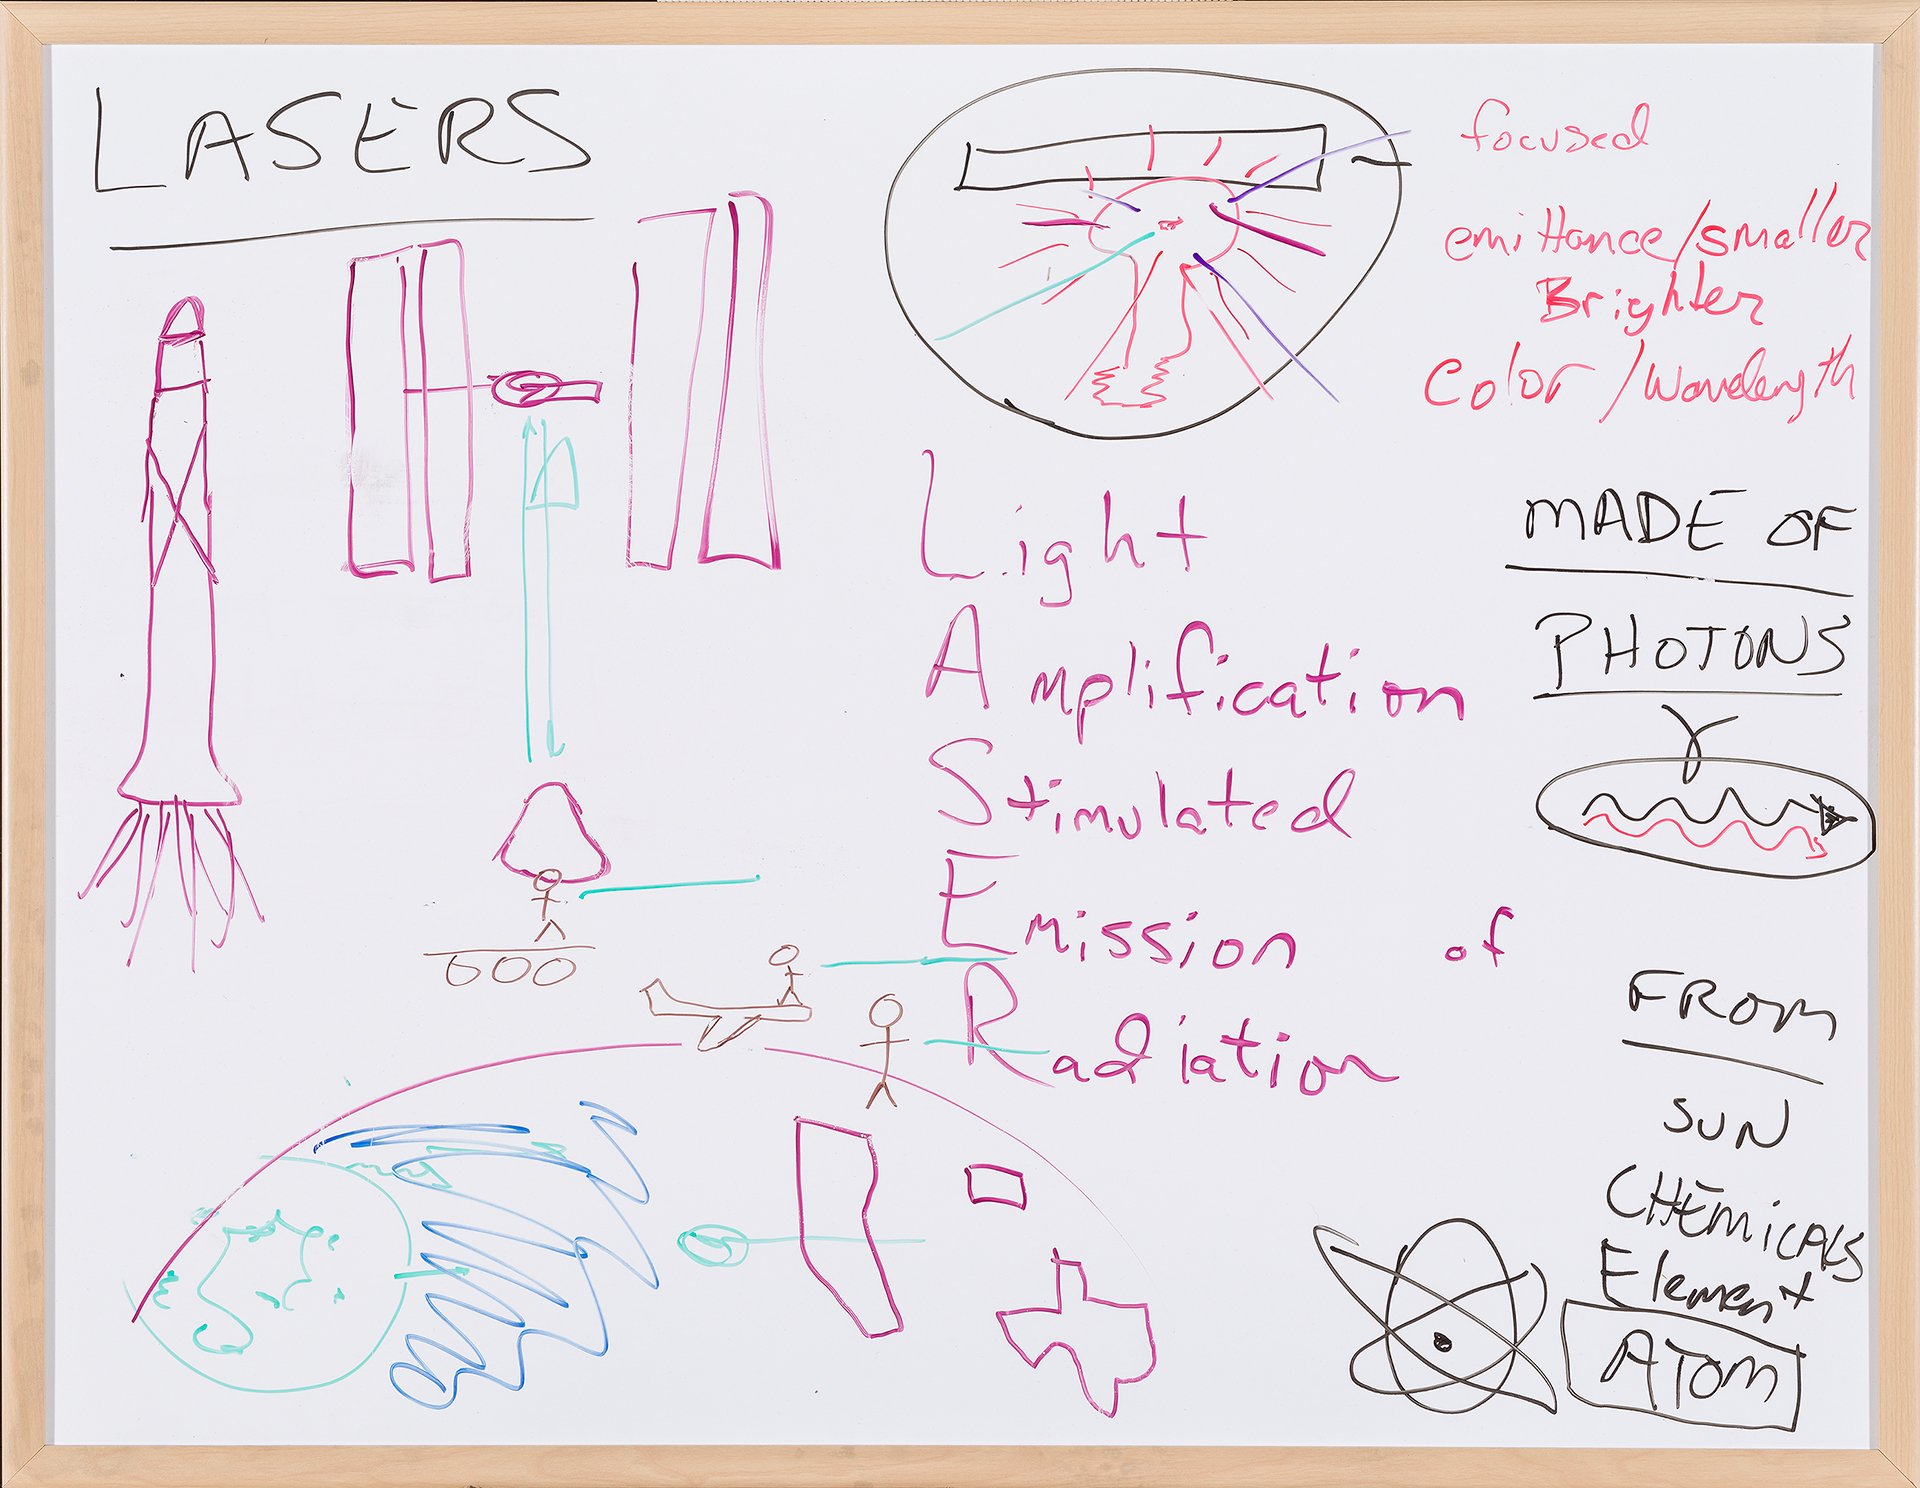 LASERS
focused
emittance/smaller
Brighter
Color/wavelength
Light
Amplification
Stimulated
Emission of
Radiation
MADE OF
PHOTONS
γ
FROM
SUN
CHEMICALS
Element
ATOM